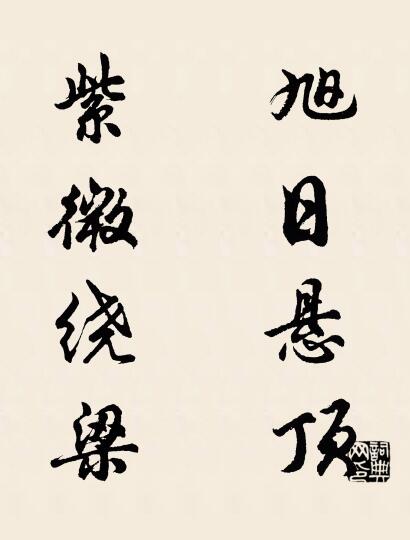 旭日悬顶
紫微绕梁
詞典网